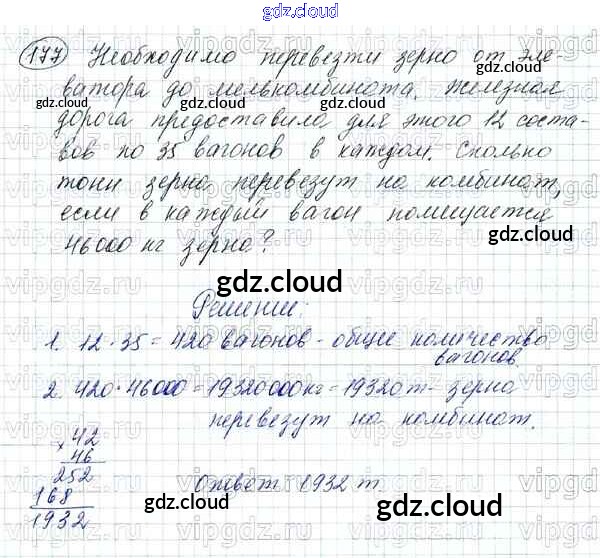 gdz.cloud
177 Необходимо перевезти зерно от эле-
ватора до мелькомбината. Железная
дорога предоставила для этого 12 соста-
вов по 35 вагонов в каждом. Сколько
тонн зерна перевезут на комбинат,
если в каждый вагон помещается
46000 кг зерна?
gdz.cloud
Решение:
1. 12 · 35 = 420 вагонов - общее количество
вагонов.
2. 420 · 46000 = 19320000 кг = 19320 т - зерна
перевезут на комбинат.
× 42
46
252
168
1932
Ответ 1932 т
gdz.cloud
vipgdz.ru